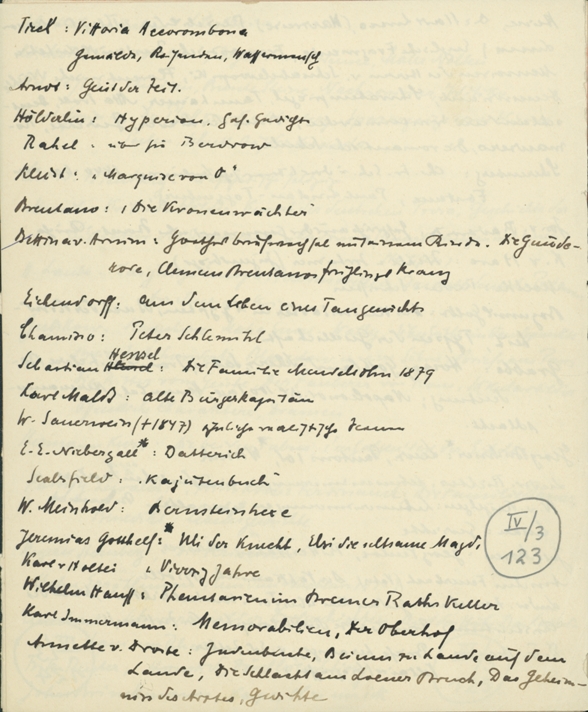 Tieck : Vittoria Accorombona
Arndt : Geist der Zeit.
Hölderlin : Hyperion, Ges. Gedichte
Rahel -
Kleist : "Marquise von O"
Brentano : , Die Kronenwächter
Bettina v. Arnim : Goethes Briefwechsel mit einem Kinde. Die Günde-
rode, Clemens Brentanos Frühlingskranz
Eichendorff : Aus dem Leben eines Taugenichts
Chamisso : Peter Schlemihl
Hensel
Sebastian Hensel : Die Familie Mendelsohn 1879
Karl Malß : alte Bürgerkapitän
W. Sauerwein (+1847)
E. E. Niebergall* : Datterich
Sealsfield : Kajütenbuch
W. Meinhold : Bernsteinhexe
Jeremias Gotthelf : * Uli der Knecht, Elsi die seltsame Magd.
IV/3
123
Karl v Holtei , Vierzig Jahre
Wilhelm Hauff : Phantasien im Bremer Raths Keller
Karl Immermann : Memorabilien, Der Oberhof
Annette v. Droste : Judenbuche, Bei uns zu Lande auf dem
Lande, Die Schlacht am Loener Bruch, Das Geheim-
nis des Arztes, Gedichte